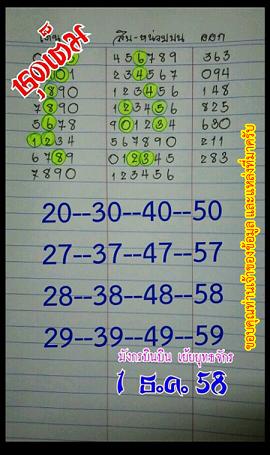 สิบ-หน่วยบน ออก
456789 363
234567 094
7890 123456 148
7890 123456 825
5678 901234 630
1234 567890 211
6789 012345 283
7890 123456
20--30--40--50
27--37--47--57
28--38--48--58
29--39--49--59
มังกรบินบิน เย้ยยุทธจักร
1 ธ.ค. 58
ขอบคุณท่านเจ้าของข้อมูล และแหล่งที่มาครับ